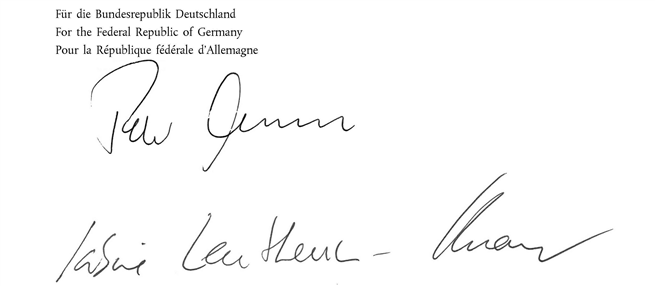 Für die Bundesrepublik Deutschland
For the Federal Republic of Germany
Pour la République fédérale d'Allemagne
Peter
Sabine Leutheusser-